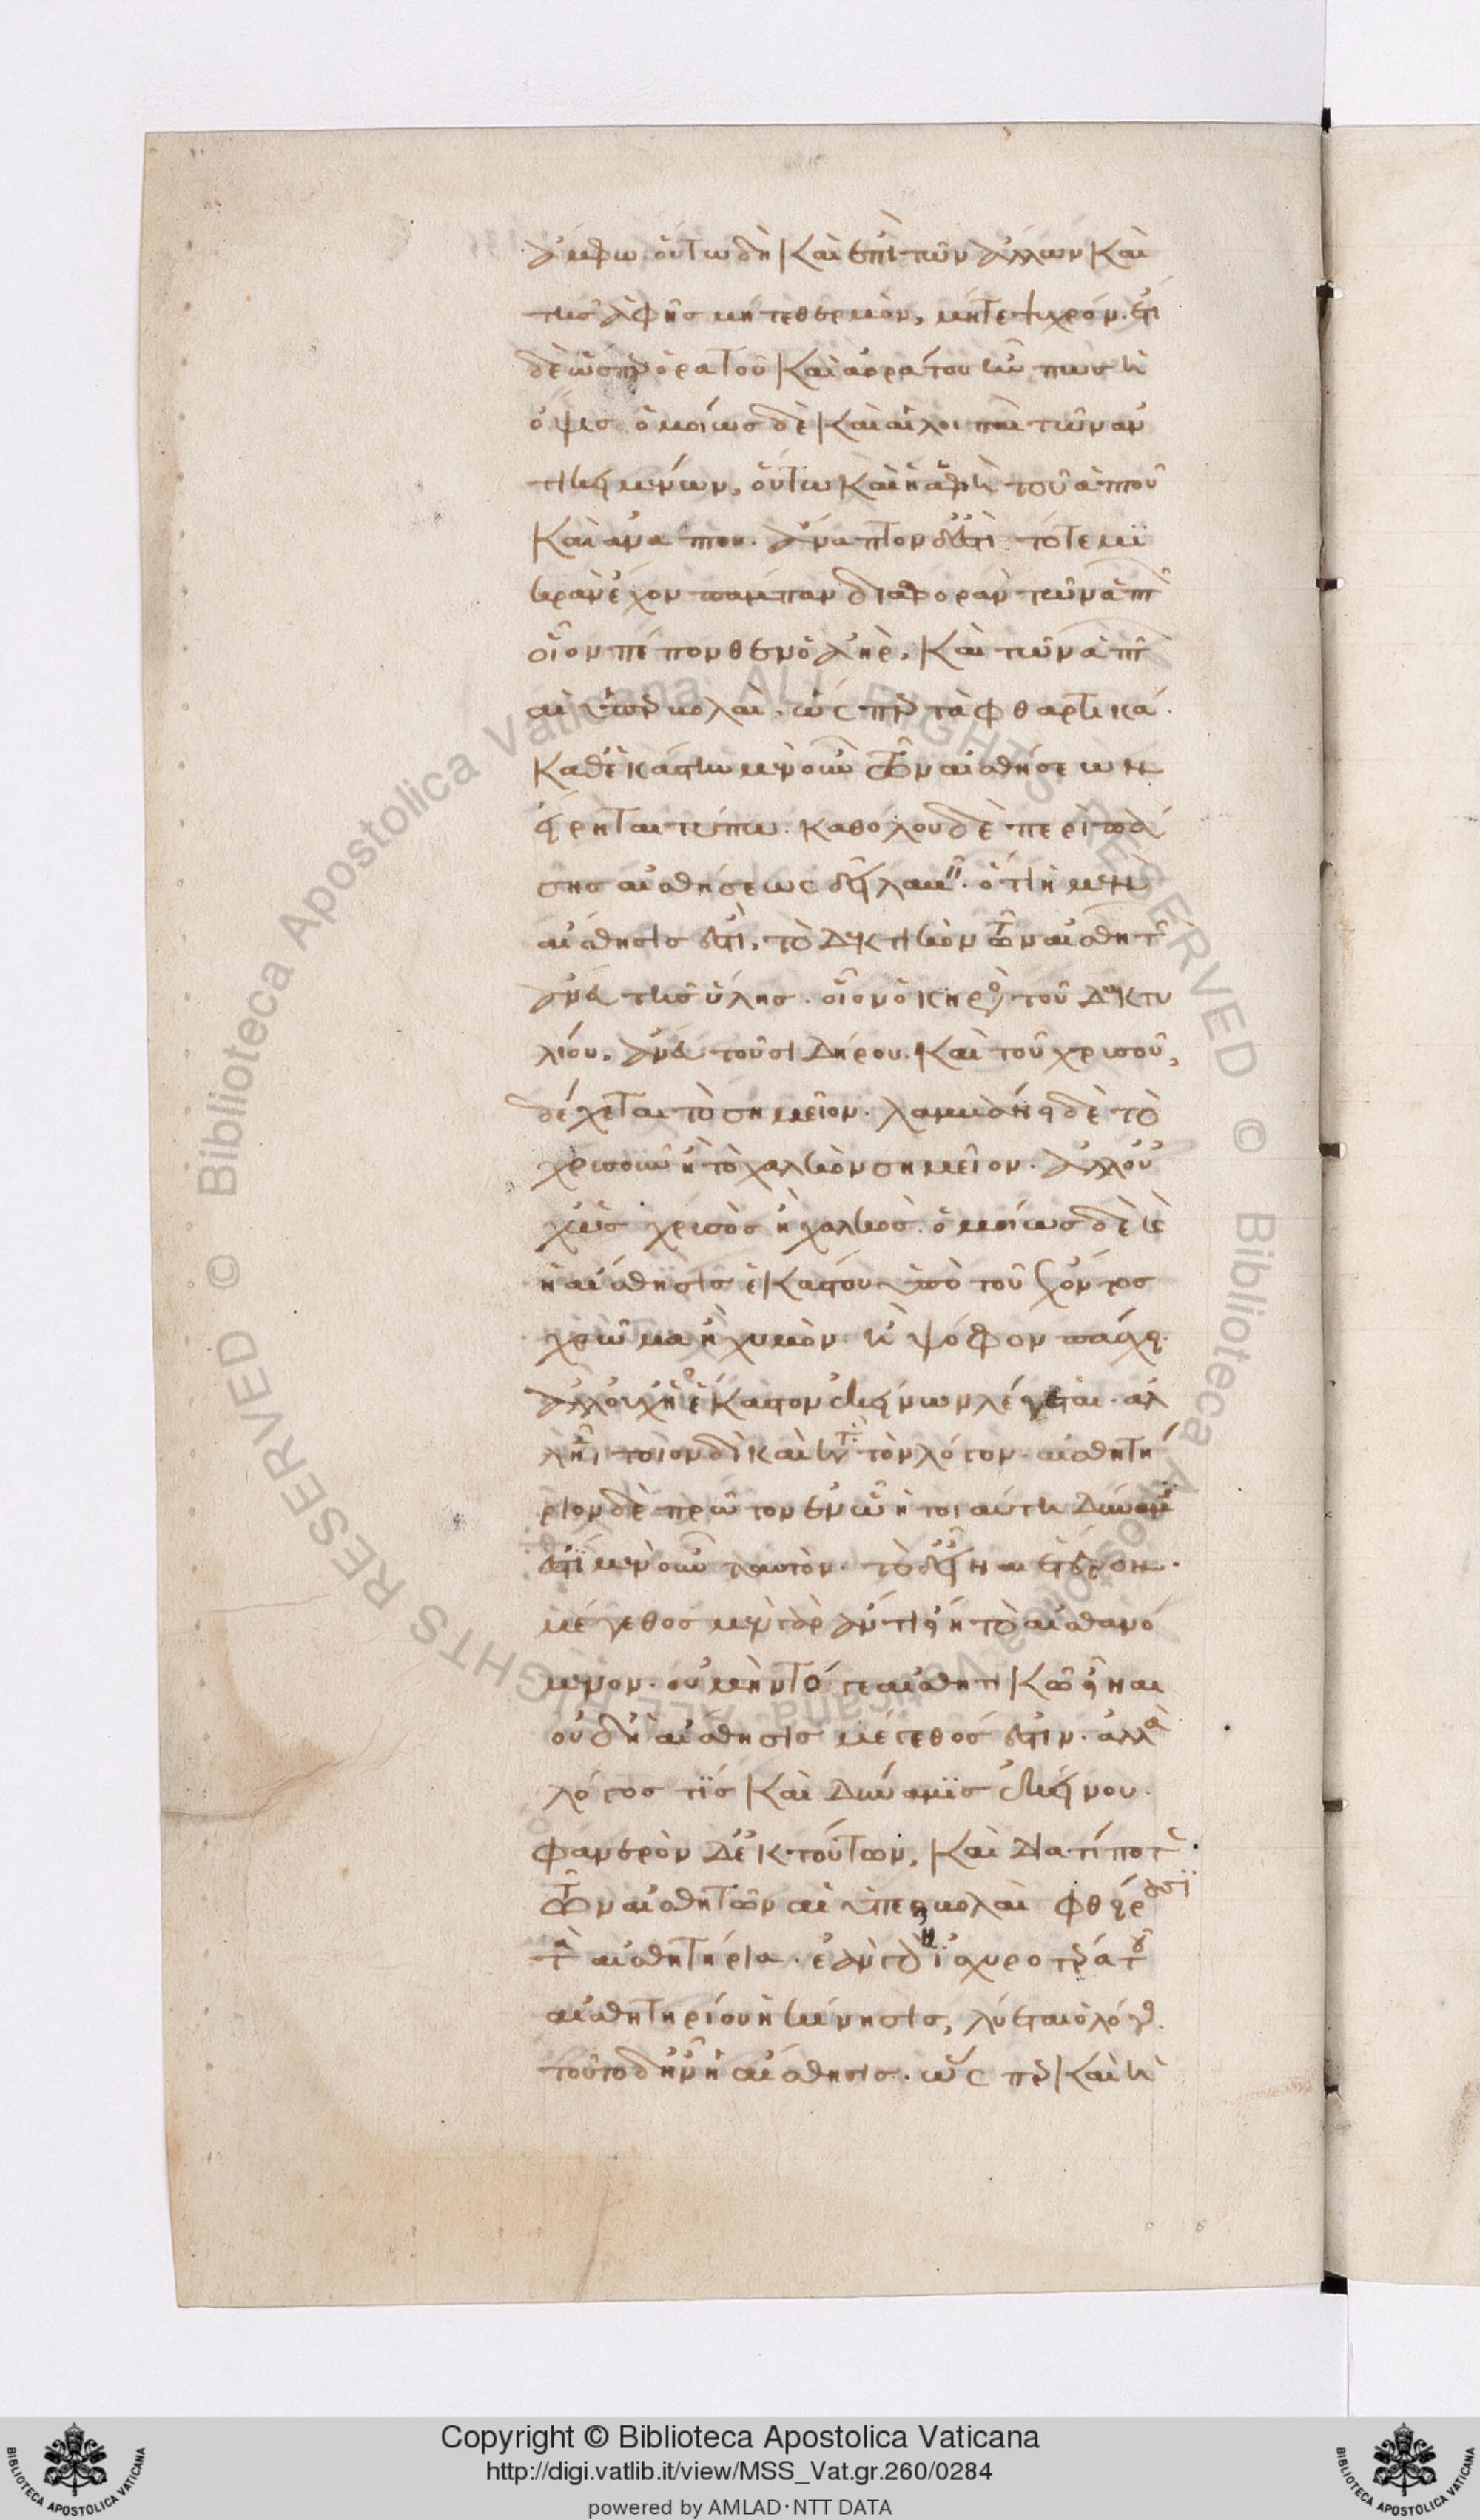 ἄμφω. οὕτω δὴ καὶ ἐπὶ τῶν ἄλλων καὶ
τῆς ἁφῆς μήτε θερμὸν, μήτε ψυχρόν. ἔτι
δὲ ὥσπερ ὁρατοῦ καὶ ἀοράτου ἦν πως ἡ
ὄψις. ὁμοίως δὲ καὶ αἱ λοιπαὶ τῶν ἀν
τικειμένων, οὕτω καὶ ἡ ἁφὴ τοῦ ἁπτοῦ
καὶ ἀνάπτου. ἄναπτον δ' ἐστὶ τό τε μι
κρὰν ἔχον πάμπαν διαφορὰν τῶν ἁπτῶν
οἷον πέπονθεν ὁ ἀήρ, καὶ τῶν ἁπτῶν
αἱ ὑπερβολαὶ. ὥσπερ τὰ φθαρτικά.
καθ' ἑκάστην μὲν οὖν τῶν αἰσθήσεων
εἴρηται τύπω. καθόλου δὲ περὶ πά
σης αἰσθήσεως δεῖ λαβεῖν. ὅτι ἡ μὲν
αἴσθησίς ἐστι, τὸ δεκτικὸν τῶν αἰσθητῶν
ἄνευ τῆς ὕλης. οἷον ὁ κηρὸς τοῦ δακτυ
λίου, ἄνευ τοῦ σιδήρου. καὶ τοῦ χρυσοῦ,
δέχεται τὸ σημεῖον. λαμβάνει δὲ τὸ
χρυσοῦν ἢ τὸ χαλκὸν σημεῖον. ἀλλ' οὐ
χῶς χρυσὸς ἢ χαλκὸς. ὁμοίως δὲ καὶ
ἡ αἴσθησις ἑκάστου ὑπὸ τοῦ ἔχοντος
χρῶμα ἢ χυμὸν ἢ ψόφον πάσχει.
ἀλλ' οὐχ ἧ ἕκαστον ἐκείνων λέγεται. ἀλ
λ' ἧ τοιονδὶ καὶ κατὰ τὸν λόγον. αἰσθητή
ριον δὲ πρῶτον ἐν ὧ ἡ τοιαύτη δύναμις
ἐστὶ μὲν οὖν ταυτὸν. τὸ δ' εἶναι ἕτερον.
μέγεθος μὲν γὰρ ἄν τι εἴη τὸ αἰσθανό
μενον. οὐ μὴν τό γε αἰσθητικῶ εἶναι
οὐδ' ἡ αἴσθησις μέγεθός ἐστιν. ἀλλὰ
λόγος τις καὶ δύναμις ἐκείνου.
φανερὸν δ' ἐκ τούτων, καὶ διατί ποτε
τῶν αἰσθητῶν αἱ ὑπερβολαὶ φθείρουσι
τὰ αἰσθητήρια. ἐὰν γὰρ ἦ ἰσχυροτέρα τοῦ
αἰσθητηρίου ἡ κίνησις, λύεται ὁ λόγος.
τοῦτο δ' ἦν ἡ αἴσθησις. ὥσπερ καὶ ἡ
Copyright © Biblioteca Apostolica Vaticana
http://digi.vatlib.it/view/MSS_Vat.gr.260/0284
powered by AMLAD·NTT DATA